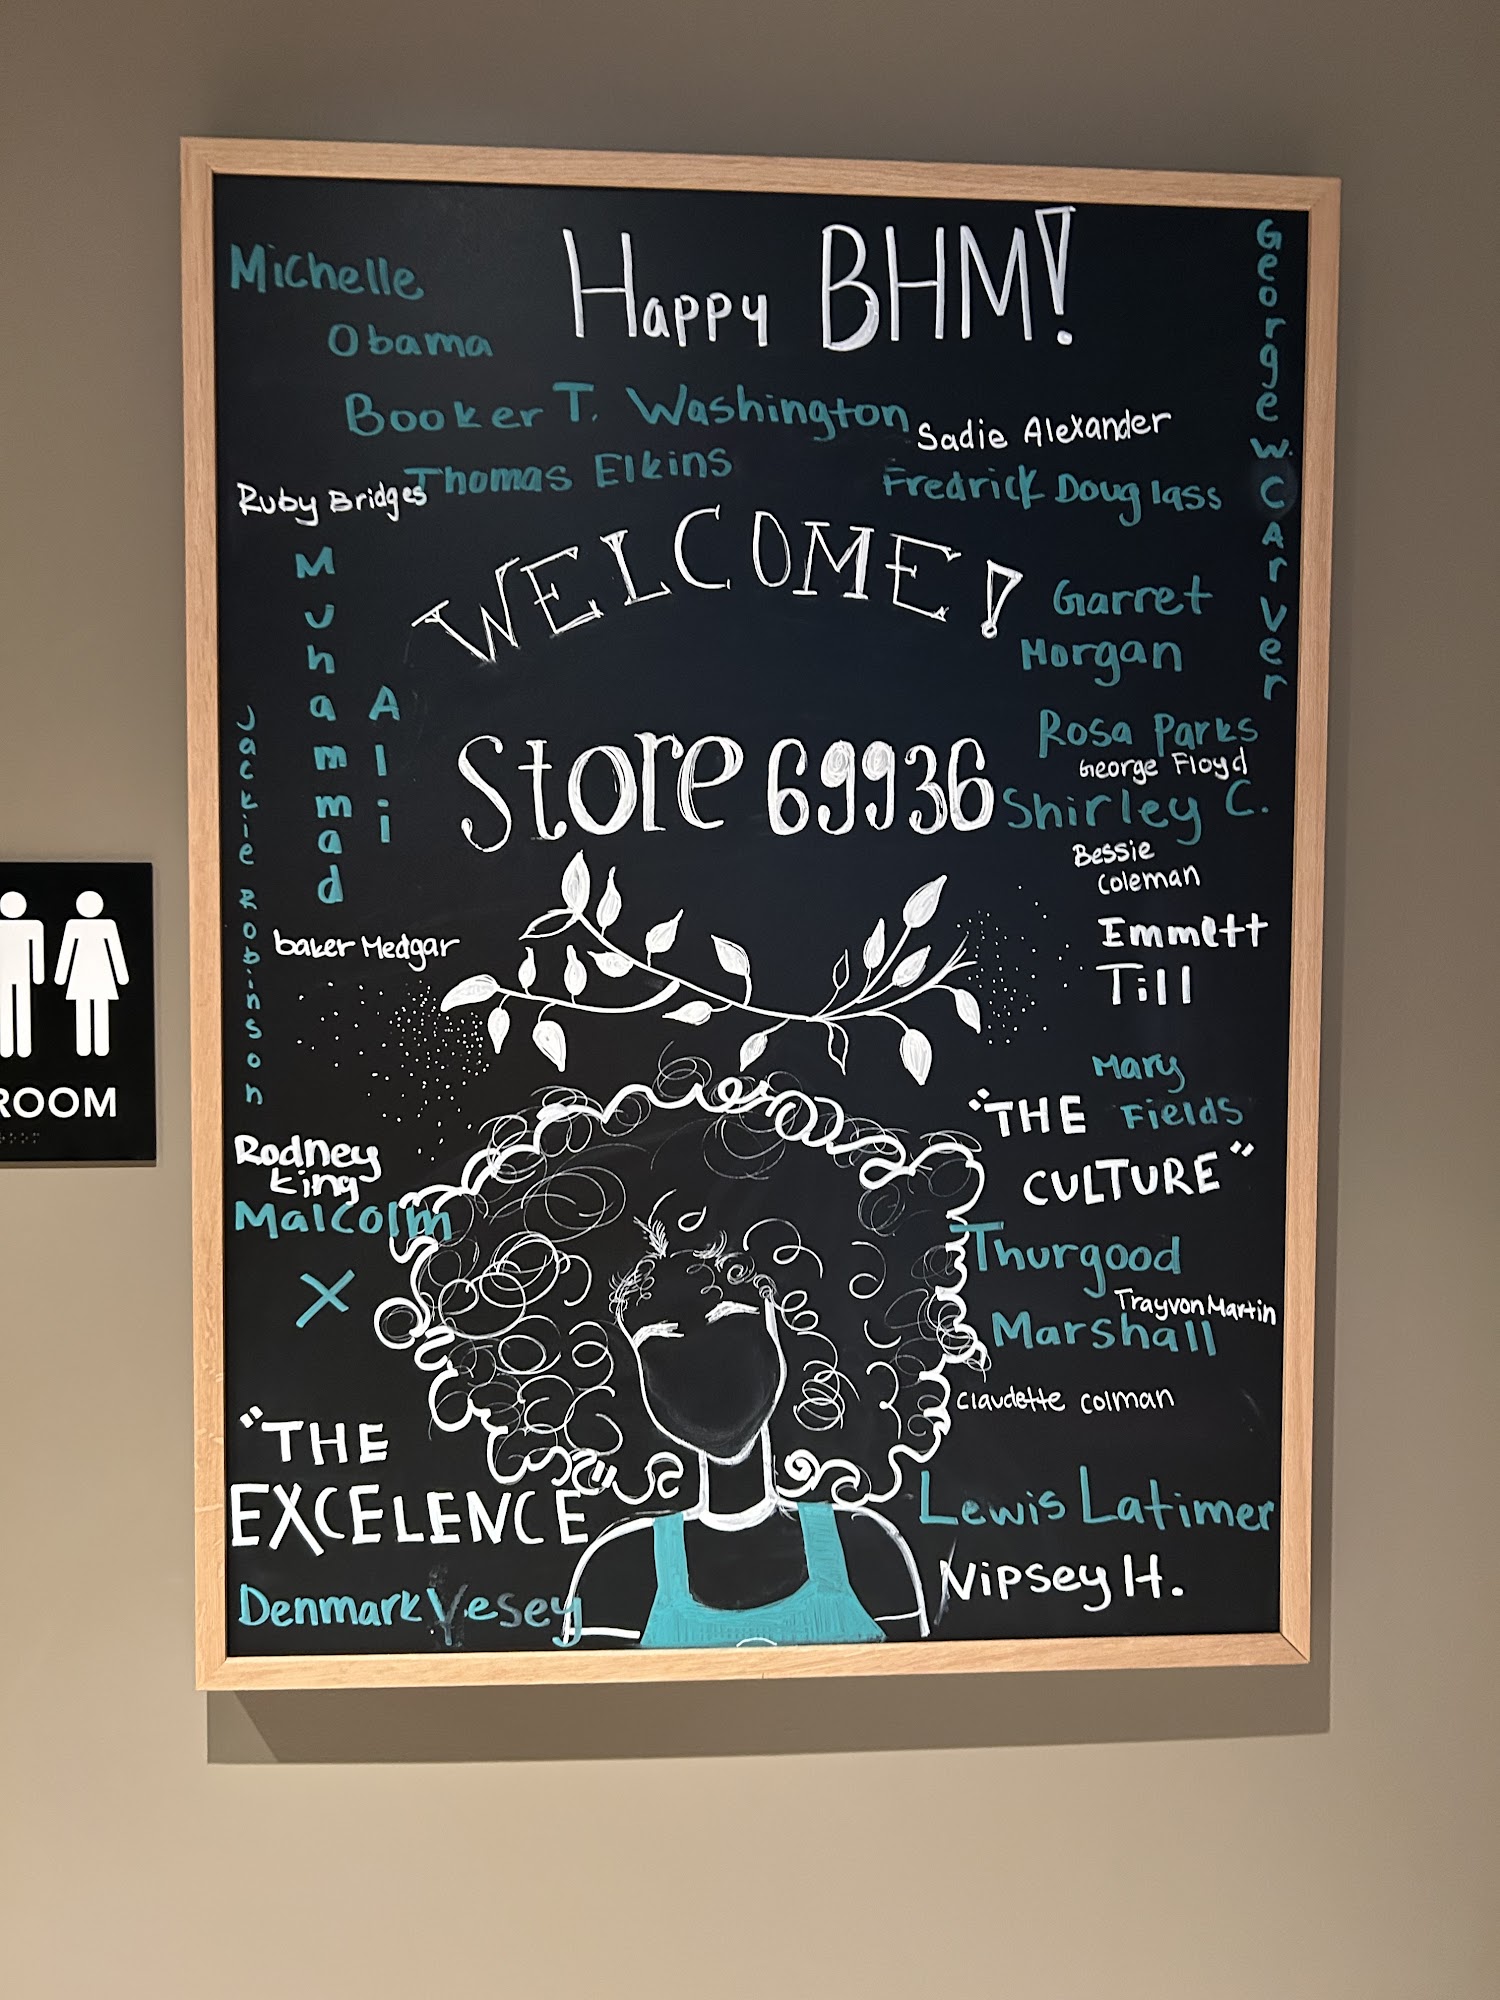 Happy BHM!
Michelle
Obama
George W. Carver
Booker T. Washington
Sadie Alexander
Thomas Elkins
Fredrick Douglass
Ruby Bridges
WELCOME!
Muhammad
Ali
Garret
Morgan
Jackie Robinson
Store 69936
Rosa Parks
George Floyd
Shirley C.
Bessie
Coleman
Emmett
Till
baker Medgar
Mary
Fields
"THE
CULTURE"
ROOM
Rodney
King
Malcolm
X
Thurgood
Trayvon Martin
Marshall
Claudette Colman
"THE
EXCELENCE"
Lewis Latimer
Denmark Vesey
Nipsey H.